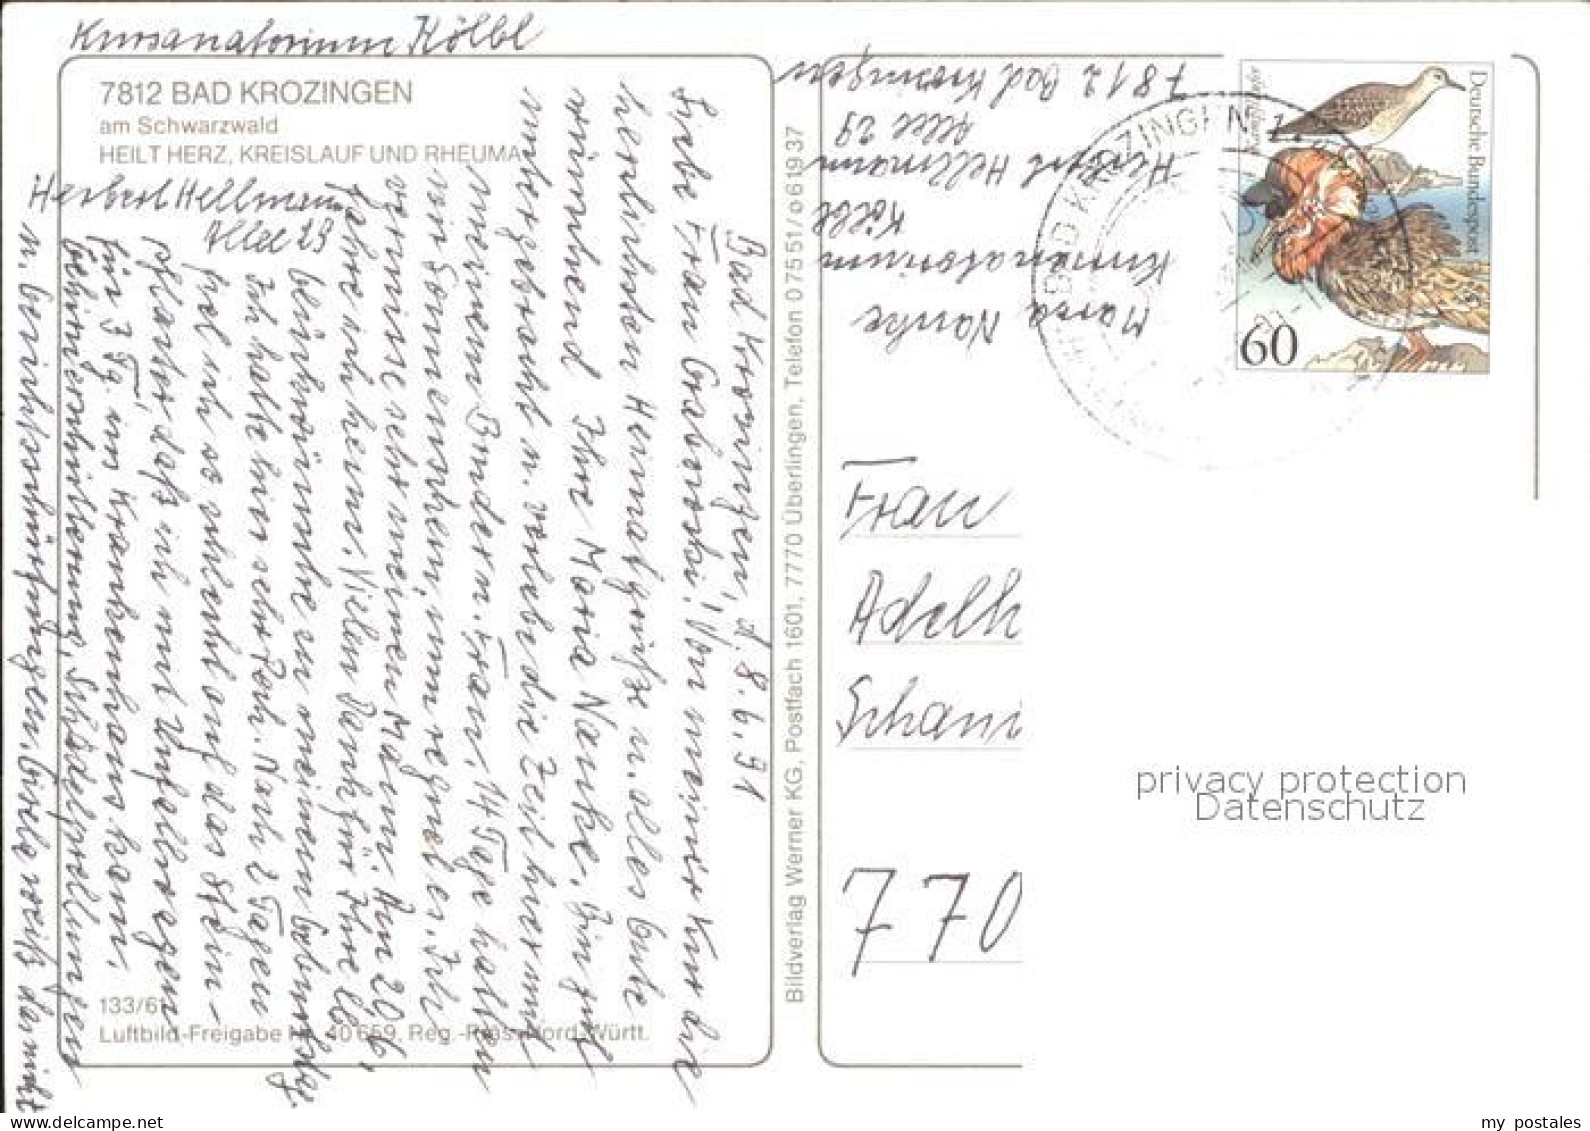 Kursanatorium Kölbl
7812 BAD KROZINGEN
am Schwarzwald
HEILT HERZ, KREISLAUF UND RHEUMA
Herbert Hellmann
Allee 29
Bad Krozingen, d. 8.6.91
Liebe Frau Grabowski! Von meiner Kur die
herzlichsten Heimatgrüße u. alles Gute
wünschend Ihre Maria Nanke. Bin gut
untergebracht u. verleb die Zeit hier mit
meinem Bruder u. Frau. 14 Tage hatten
wir Sonnenschein, nun regnet es. Ich
vermisse sehr meinen Mann. Am 20.6.
fahre ich heim. Vielen Dank für Ihre lb.
Glückwünsche zu meinem Geburtstag.
Ich hatte hier sehr Pech. Nach 2 Tagen
fiel ich so schlecht auf das Stein-
pflaster, daß ich mit Unfallwagen
für 3 Tg. ins Krankenhaus kam.
Gehirnerschütterung, Schädelprellungen
u. Gesichtsschürfungen. Gisela weiß das nicht
133/61
Luftbild-Freigabe Nr. 40659, Reg.-Präs. Nord-Württ.
Bildverlag Werner KG, Postfach 1601, 7770 Überlingen, Telefon 07551/061937
Maria Nanke
Kursanatorium
Kölbl
Herbert Hellmann
Allee 29
7812 Bad Krozingen
BAD KROZINGEN 1
Deutsche Bundespost
60
Frau
Adelh
Schani
770
privacy protection
Datenschutz
my postales